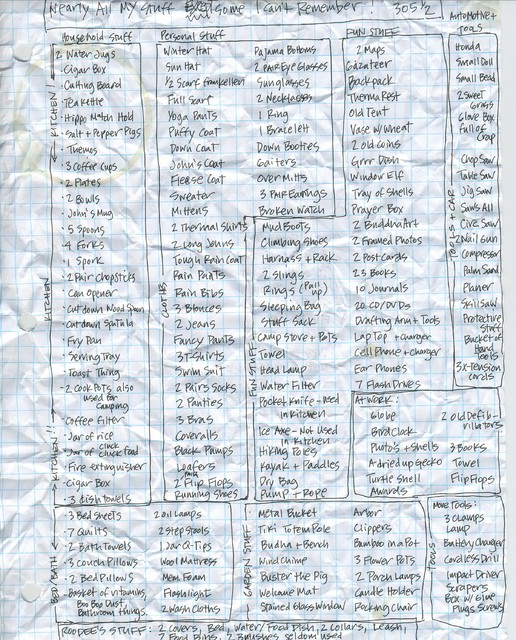 Nearly All My Stuff Some I Can't Remember! 305 1/2
Household Stuff
KITCHEN
2 Water Jugs
Cigar Box
Cutting Board
Tea Kettle
Hippo Match Hold
Salt + Pepper Pigs
Thermos
3 Coffee Cups
2 Plates
2 Bowls
John's Mug
5 Spoons
4 Forks
1 Spork
2 Pair Chopsticks
KITCHEN
Can Opener
Cut down Wood Spoon
Cut down Spatula
Fry Pan
Serving Tray
Toast Thing
2 Cook Pots also
used for
camping
Coffee Filter
KITCHEN!!
Jar of rice
Jar of chick food
Fire extinguisher
Cigar Box
3 dish towels
Personal Stuff
CLOTHS
Winter Hat
Sun Hat
1/2 Scarf frankellen
Full Scarf
Yoga Pants
Puffy Coat
Down Coat
John's Coat
Fleece Coat
Sweater
Mittens
2 Thermal Shirts
2 Long Johns
Tough Rain Coat
Rain Pants
Rain Bibs
3 Blouces
2 Jeans
Fancy Pants
3 T-Shirts
Swim Suit
2 Pairs Socks
2 Panties
3 Bras
Coveralls
Black Pumps
Loafers
2 Pair Flip Flops
Running Shoes
Pajama Bottoms
2 PAIR Eye Glasses
Sunglasses
2 Necklaces
1 Ring
1 Bracelett
Down Booties
Gaiters
Over Mitts
3 PAIR Earrings
Broken Watch
FUN STUFF
Mud Boots
Climbing Shoes
Harness + Rack
2 Slings
Ring's (Pull up)
Sleeping Bag
Stuff Sack
Camp Stove + Pots
Towel
Head Lamp
Water Filter
Pocket Knife - Used
in Kitchen
Ice Axe - Not Used
in Kitchen
Hiking Poles
Kayak + Paddles
Dry Bag
Pump + Rope
FUN STUFF
2 Maps
Gazateer
Backpack
Therma Rest
Old Tent
Vase w/ Wheat
2 Old Coins
Grrr Dish
Window Elf
Tray of Shells
Prayer Box
2 Buddha Art
2 Framed Photos
2 Post Cards
25 Books
10 Journals
20 CD/DVDs
Drafting Arm + Tools
Lap Top + charger
Cell Phone + charger
Ear Phones
7 Flash Drives
AT WORK:
Globe
Bird Clock
Photo's + Shells
A dried up Gecko
Turtle Shell
Awards
2 old Defib-
rillators
3 Books
Towel
Flip Flops
Automotive +
Tools
TOOLS + CAR
Honda
Small Doll
Small Bead
2 Sweet
Grass
Glove Box
Full of
Crap
Chop Saw
Table Saw
Jig Saw
Saws All
Circ Saw
2 Nail Gun
Compressor
Palm Sand
Planer
Skil Saw
Protective
Stuff
Bucket of
Hand
Tools
3 x-tension
cords
BED/BATH
3 Bed Sheets
7 Quilts
2 Bath Towels
3 Couch Pillows
2 Bed Pillows
Basket of vitamins,
Boo Boo Dust,
Bathroom things.
2 Oil Lamps
2 Step Stools
1 Jar Q-Tips
Wool Mattress
Mem Foam
Flashlight
2 Wash Cloths
GARDEN STUFF
Metal Bucket
Tiki Totem Pole
Budha + Bench
Wind Chime
Buster the Pig
Welcome Mat
Stained Glass Window
Arbor
Clippers
Bamboo in a Pot
3 Flower Pots
2 Porch Lamps
Candle Holder
Rocking Chair
TOOLS
More Tools:
3 Clamps
Lamp
Battery Charger
Cordless Drill
Impact Driver
Scrapers
Box w/ Glue
Plugs Screws
ROODEE'S STUFF: 2 covers, Bed, Water/Food Dish, 2 Collars, Leash,
2 Food Bins, 2 Brushes seldom used